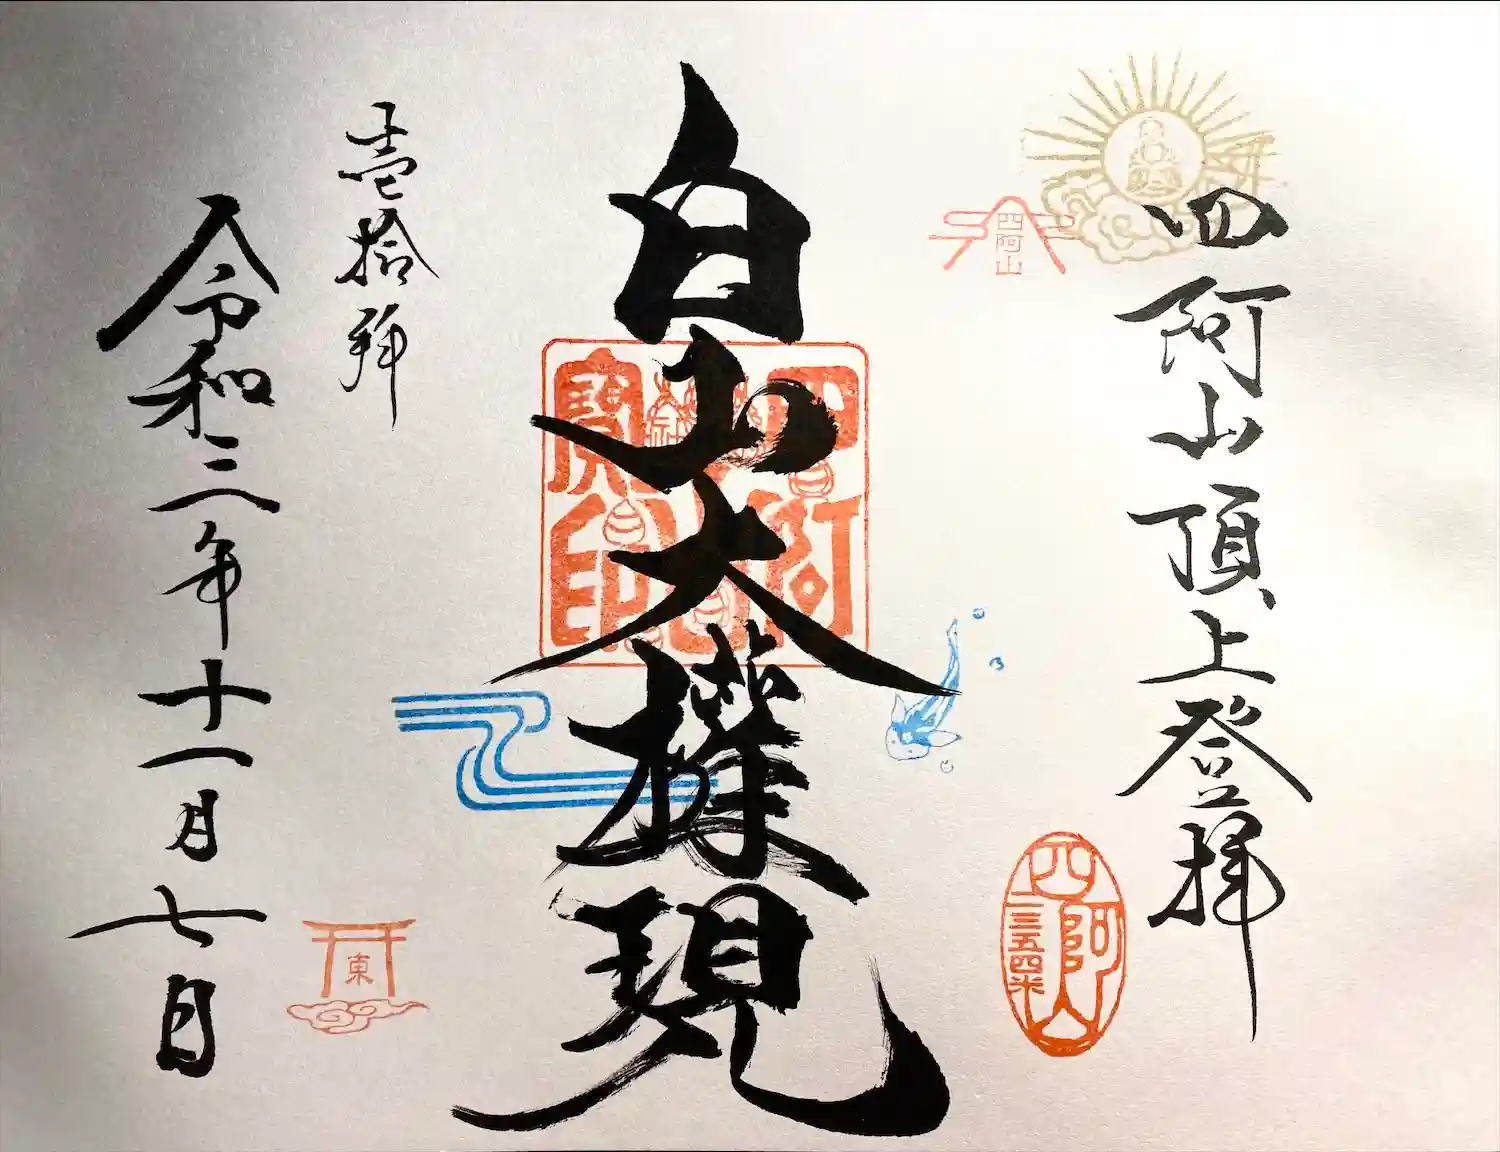 四阿山頂上登拝
四阿山
四阿山
二三五四米
白山大権現
四阿山
寶印
壱拾拝
令和三年十一月七日
東